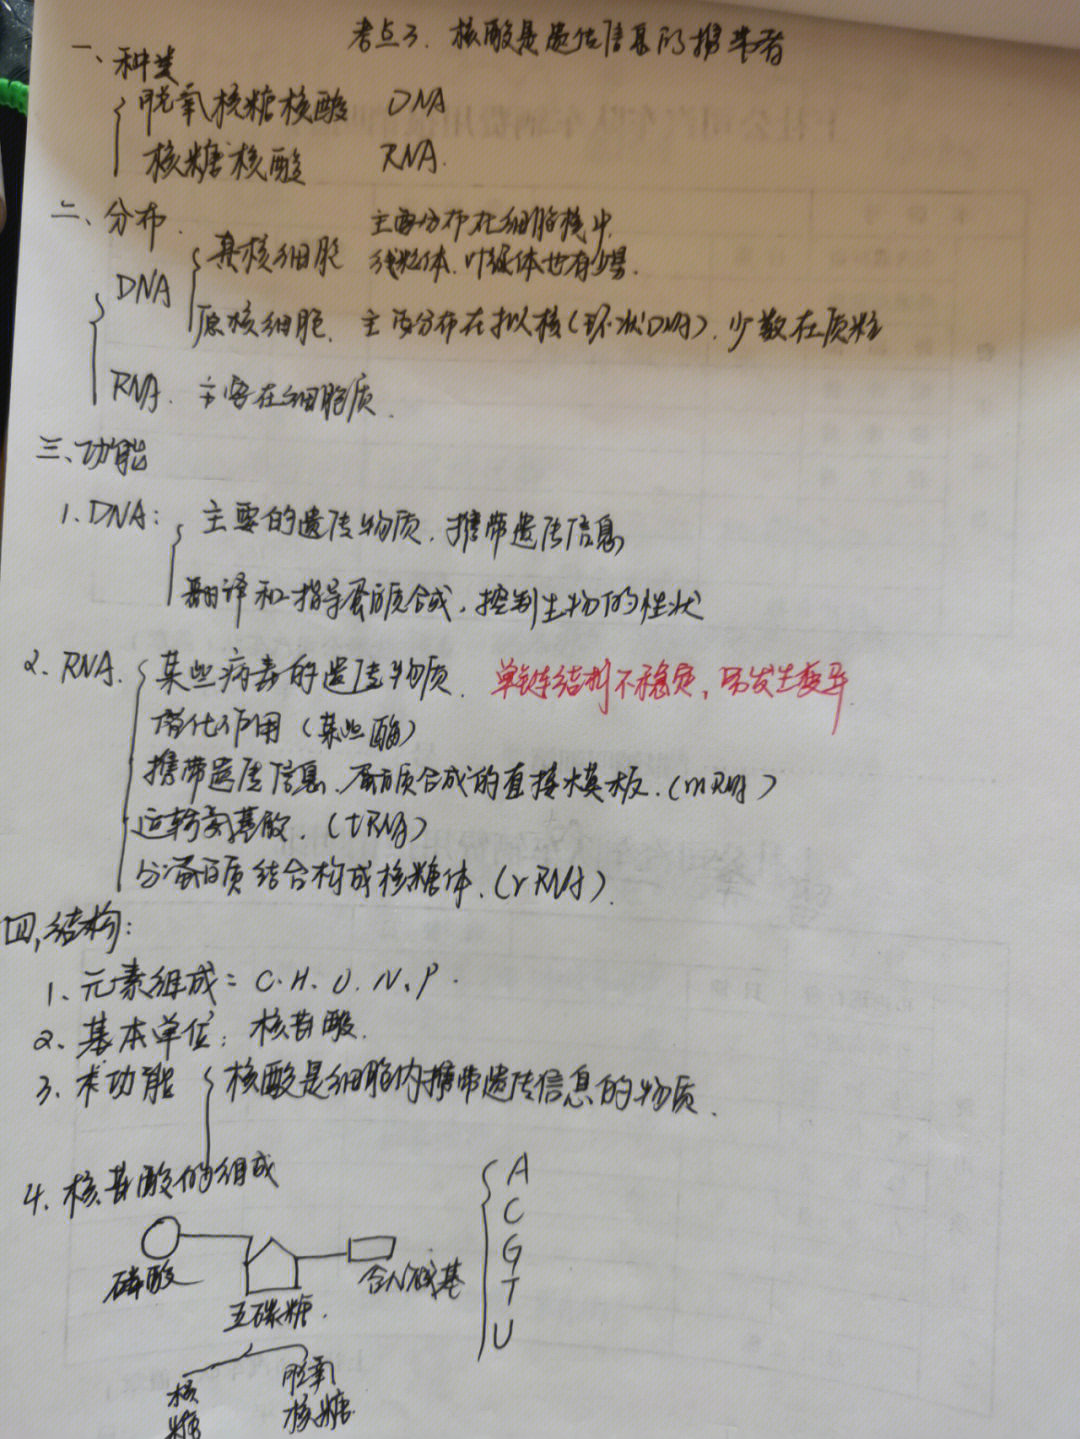 考点3. 核酸是遗传信息的携带者
一、种类
脱氧核糖核酸 DNA
核糖核酸 RNA.
二、分布.
DNA
真核细胞 主要分布在细胞核中.
线粒体.叶绿体也有少量.
原核细胞. 主要分布在拟核(环状DNA).少数在质粒
RNA. 主要在细胞质.
三、功能
1.DNA: 主要的遗传物质.携带遗传信息
翻译和指导蛋白质合成.控制生物的性状
2.RNA. 某些病毒的遗传物质. 单链结构不稳定,易发生变异
催化作用(某些酶)
携带遗传信息.蛋白质合成的直接模板.(mRNA)
运输氨基酸.(tRNA)
与蛋白质结合构成核糖体.(rRNA).
四,结构:
1、元素组成: C.H.O.N.P.
2、基本单位: 核苷酸.
3.功能 核酸是细胞内携带遗传信息的物质.
4.核苷酸的组成
磷酸
五碳糖.
含N碱基
A
C
G
T
U
核糖
脱氧核糖